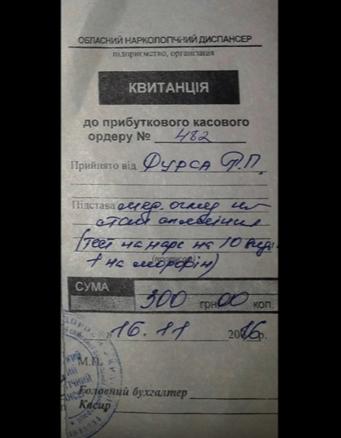 ОБЛАСНИЙ НАРКОЛОГІЧНИЙ ДИСПАНСЕР
підприємство, організація
КВИТАНЦІЯ
до прибуткового касового
ордеру № 482
Прийнято від Фурса Р.П.
Підстава мед. огляд
стан сп'яніння
(тест на нарк на 10 видів
на морфін)
СУМА 300 грн 00 коп.
16. 11 2016р.
М.П.
Головний бухгалтер
Касир